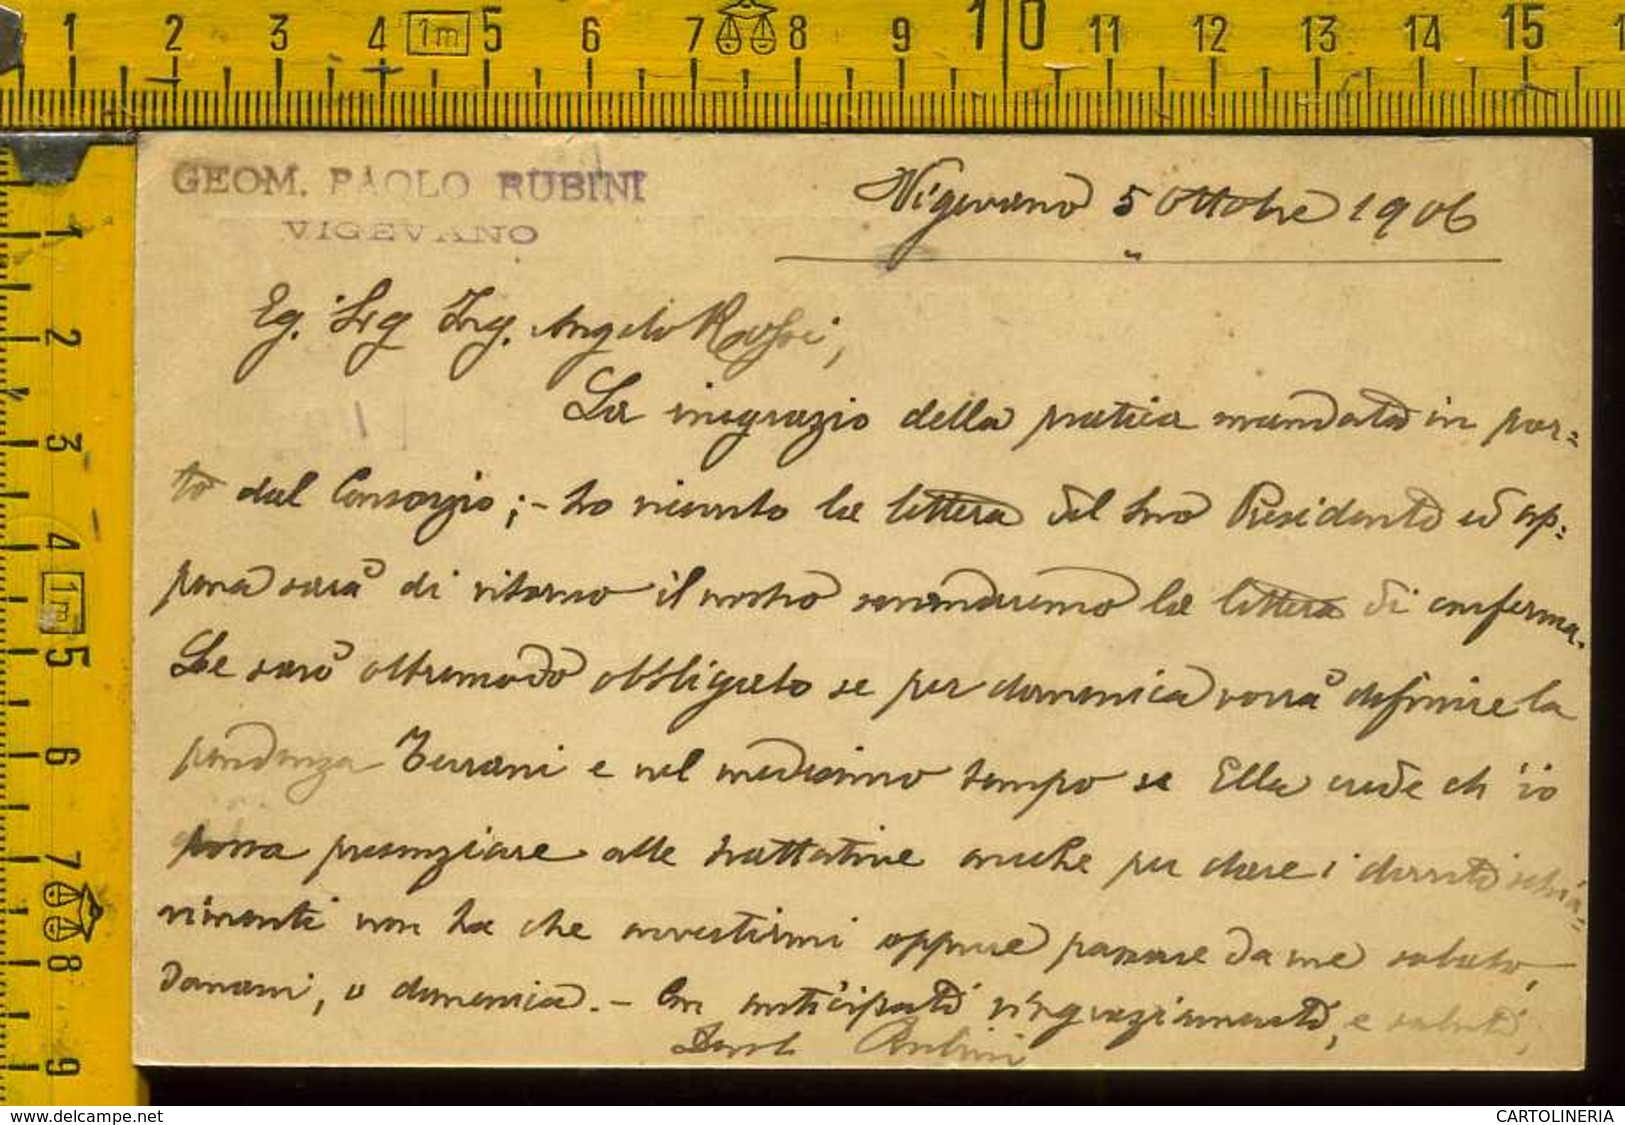 1 2 3 4 1m 5 6 7 8 9 10 11 12 13 14 15
1
2
3
4
1m
5
6
7
8
9
GEOM. PAOLO RUBINI
VIGEVANO
Vigevano 5 Ottobre 1906
Eg. Sig Ing. Angelo Rossi,
La ringrazio della pratica mandata in por=
to dal Consorzio; - ho ricevuto la lettera del suo Presidente ed ap=
pena sarà di ritorno il nostro manderemo la lettera di conferma.
Le sarò oltremodo obbligato se per domenica vorrà definire la
pendenza Terrani e nel medesimo tempo se Ella crede ch'io
possa presenziare alle trattative anche per dare i dovuti schia=
rimenti non ha che avvertirmi oppure passare da me sabato,
domani, o domenica. - Con anticipati ringraziamenti, e saluti,
Rubini
www.delcampe.net
CARTOLINERIA